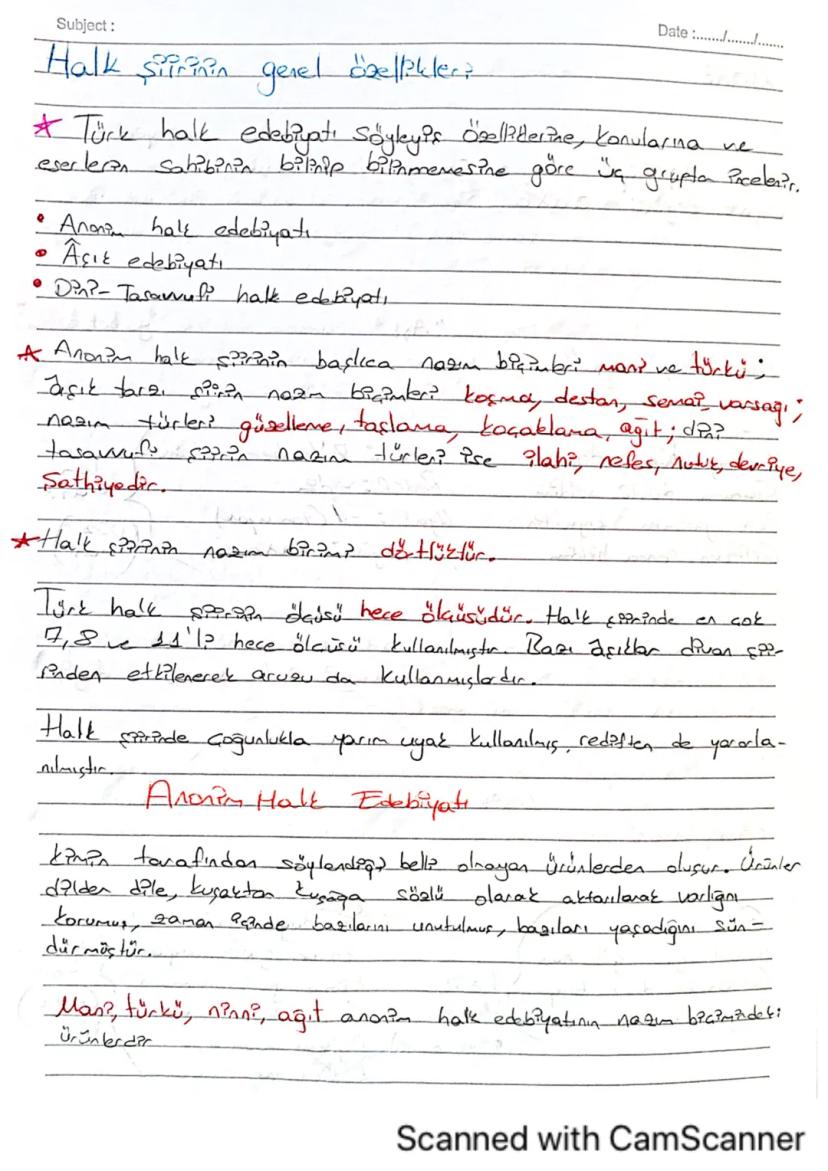 Subject :
Date :......./......./.......
Halk şiirinin genel özellikleri
Türk halk edebiyatı söyleyiş özelliklerine, konularına ve
eserlerin sahibinin bilinip bilinmemesine göre üç grupta incelenir.
Anonim halk edebiyatı
Âşık edebiyatı
Dini-Tasavvufi halk edebiyatı
Anonim halk şiirinin başlıca nazım biçimleri mani ve türkü;
âşık tarzı şiirin nazım biçimleri koşma, destan, semai, varsağı;
nazım türleri güzelleme, taşlama, koçaklama, ağıt; dini
tasavvufi şiirin nazım türleri ise ilahi, nefes, nutuk, devriye,
Şathiyedir.
Halk şiirinin nazım birimi dörtlüktür.
Türk halk şiirinin ölçüsü hece ölçüsüdür. Halk şiirinde en çok
7, 8 ve 11'li hece ölçüsü kullanılmıştır. Bazı âşıklar divan şii-
rinden etkilenerek aruzu da kullanmışlardır.
Halk şiirinde çoğunlukla yarım uyak kullanılmış, rediften de yararla-
nılmıştır.
Anonim Halk Edebiyatı
Kimin tarafından söylendiği belli olmayan ürünlerden oluşur. Ürünler
dilden dile, kuşaktan kuşağa sözlü olarak aktarılarak varlığını
korumuş, zaman içinde bazılarını unutulmuş, bazıları yaşadığını sün-
dürmüştür.
Mani, türkü, ninni, ağıt anonim halk edebiyatının nazım biçimindeki
ürünlerdir
Scanned with CamScanner